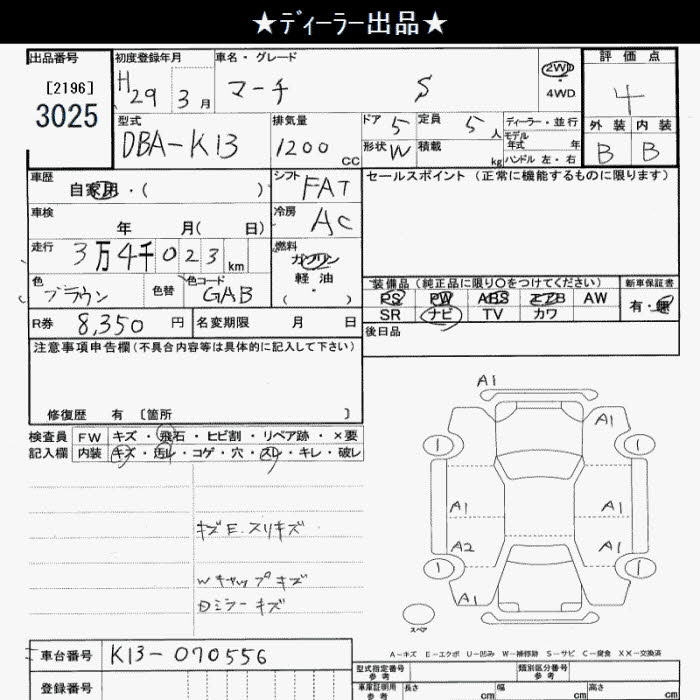 ★ディーラー出品★
出品番号
[2196]
3025
初度登録年月
H 29 3 月
車名・グレード
マーチ S
2WD
・
4WD
評価点
4
外装 内装
B B
型式
DBA-K13
排気量
1200 CC
ドア 5
定員 5 人
形状 W
積載 kg
ディーラー・並行
モデル年式 年
ハンドル 左・右
車歴
自家用・( )
シフト FAT
セールスポイント (正常に機能するものに限ります)
車検
年 月( 日)
冷房 AC
走行
3万4千023 km
燃料
ガソリン
・
軽油
・
( )
色
ブラウン
色替
色コード
GAB
装備品 (純正品に限り○をつけてください)
PS PW ABS エアB AW
SR ナビ TV カワ
新車保証書
有・無
R券 8,350 円
名変期限 月 日
後日品
注意事項申告欄(不具合内容等は具体的に記入して下さい)
修復歴 有 〔箇所 〕
検査員
記入欄
FW キズ・飛石・ヒビ割・リペア跡・×要
内装 キズ・汚レ・コゲ・穴・スレ・キレ・破レ
キズE.スリキズ
Wキャップキズ
Dミラーキズ
A1
A1
1 1
A1 A1
A2 A1
1 1
A1
スペア
A-キズ E-エクボ U-凹み W-補修跡 S-サビ C-腐食 XX-交換済
車台番号 K13-070556
登録番号
型式指定番号
参考
類別区分番号
参考
車庫証明用
参考
長さ cm
幅 cm
高さ cm